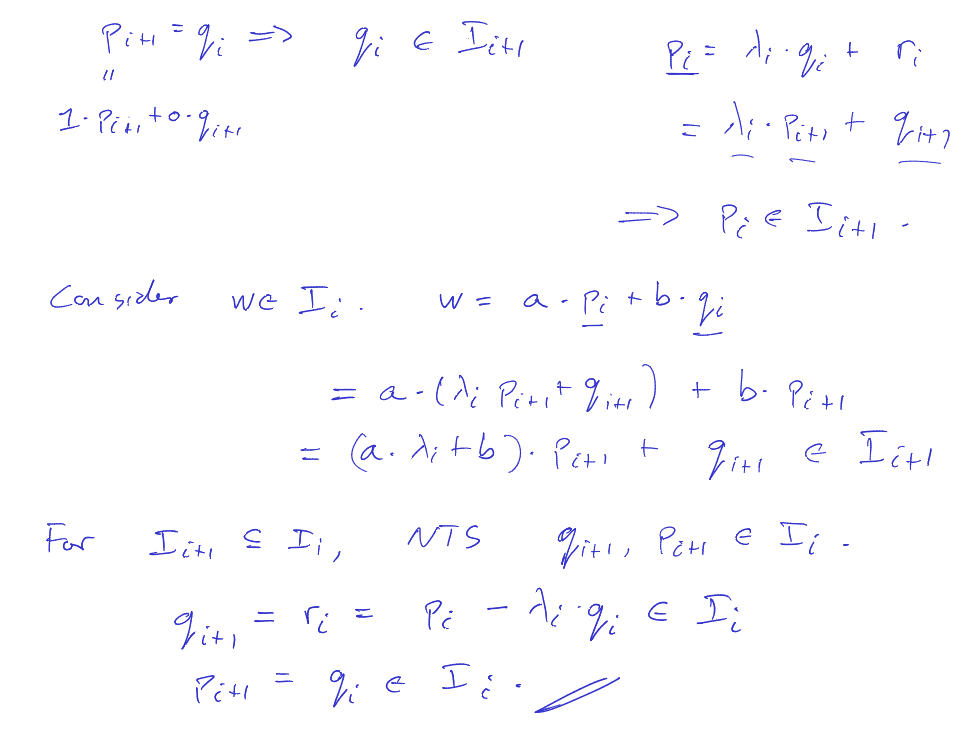 p_{i+1} = q_i ⟹ q_i ∈ I_{i+1}
"
1·p_{i+1} + 0·q_{i+1}
p_i = λ_i · q_i + r_i
= λ_i · p_{i+1} + q_{i+1}
⟹ p_i ∈ I_{i+1}.
Consider w ∈ I_i. w = a · p_i + b · q_i
= a · (λ_i p_{i+1} + q_{i+1}) + b · p_{i+1}
= (a · λ_i + b) · p_{i+1} + q_{i+1} ∈ I_{i+1}
For I_{i+1} ⊆ I_i, NTS q_{i+1}, p_{i+1} ∈ I_i.
q_{i+1} = r_i = p_i − λ_i · q_i ∈ I_i
p_{i+1} = q_i ∈ I_i. //